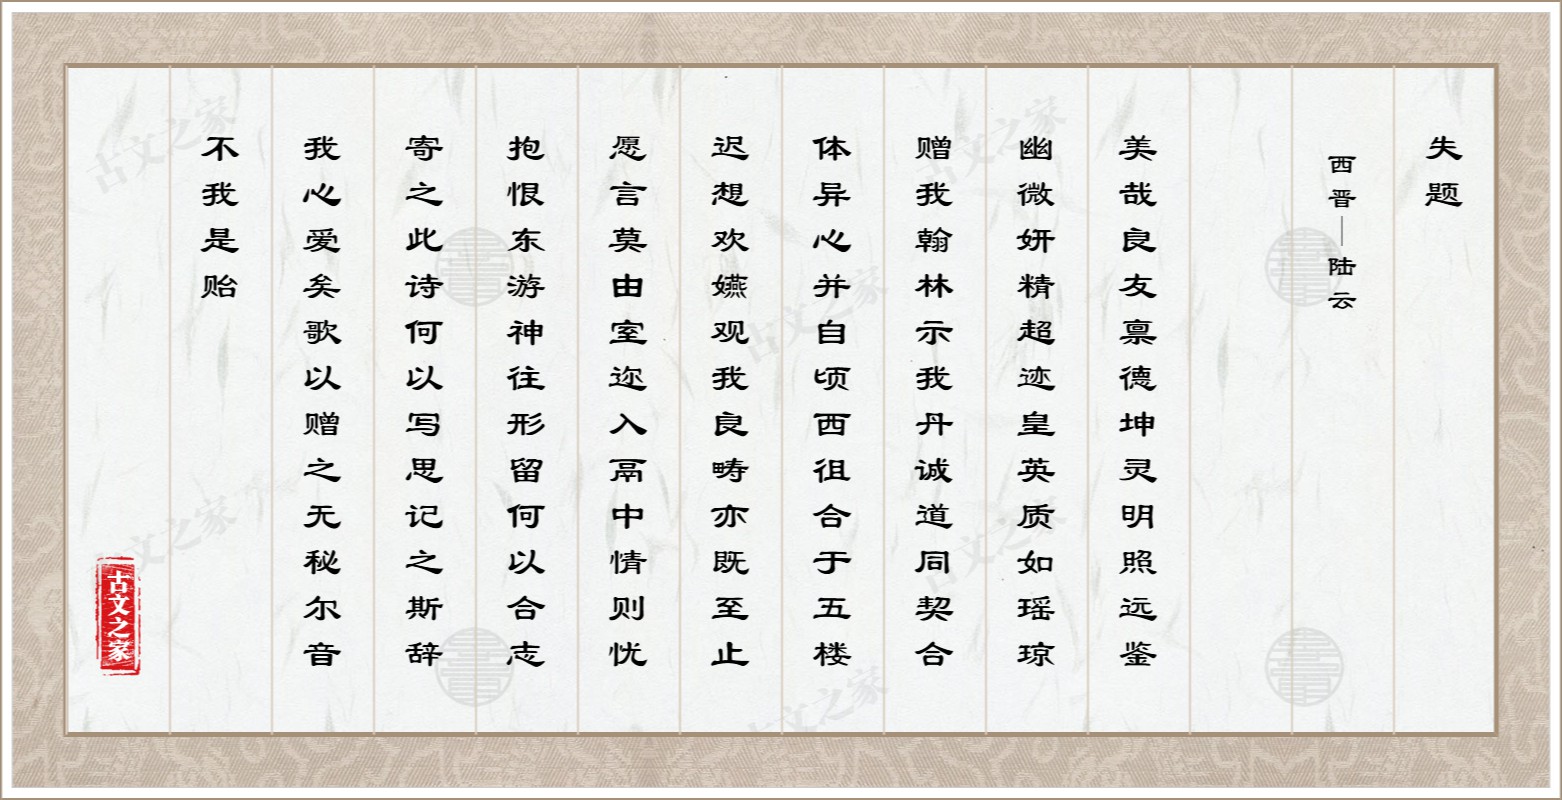 失题
西晋—陆云
美哉良友禀德坤灵明照远鉴
幽微妍精超迹皇英质如瑶琼
赠我翰林示我丹诚道同契合
体异心并自顷西徂合于五楼
迟想欢嬿观我良畴亦既至止
愿言莫由室迩入鬲中情则忧
抱恨东游神往形留何以合志
寄之此诗何以写思记之斯辞
我心爱矣歌以赠之无秘尔音
不我是贻
古文之家